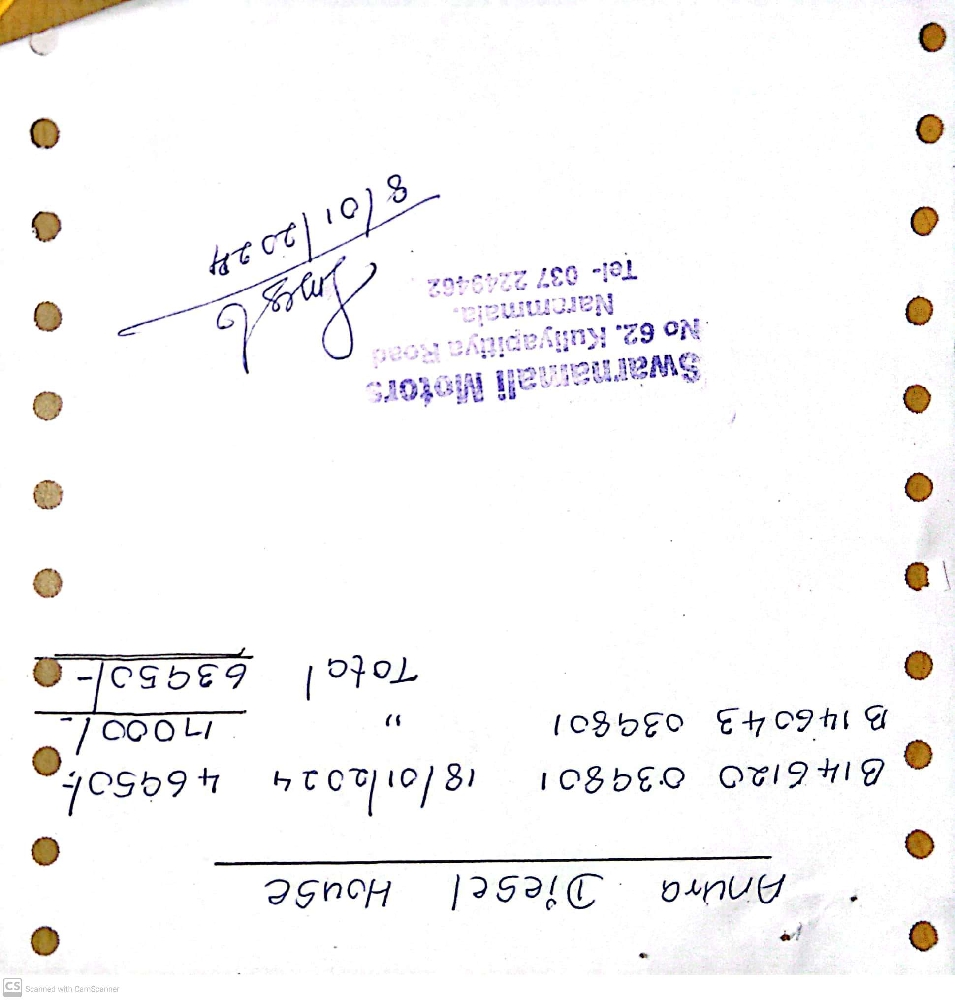 Anura Diesel House
B146120 039801 18/01/2024 46950/-
B146043 039801 " 17000/-
Total 63950/-
Swarnamali Motors
No 62. Kuliyapitiya Road
Narammala.
Tel- 037 2249462
8/01/2024
Scanned with CamScanner